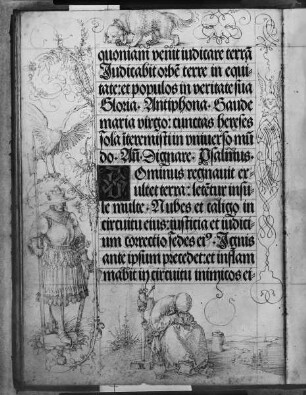 quoniam venit iudicare terrā
Iudicabit orbē terre in equi
tate: et populos in veritate sua
Gloria · Antiphona · Gaude
maria virgo: cunctas hereses
sola īteremisti in vniverso mū
do · Añ · Dignare · Psalmus.
Dominus regnauit ex
ultet terra: letētur insu
le multe · Nubes et caligo in
circuitu eius: iusticia et iudici
um correctio sedes ei⁹ · Ignis
ante ipsum precedet: et inflam
mabit in circuitu inimicos ei-